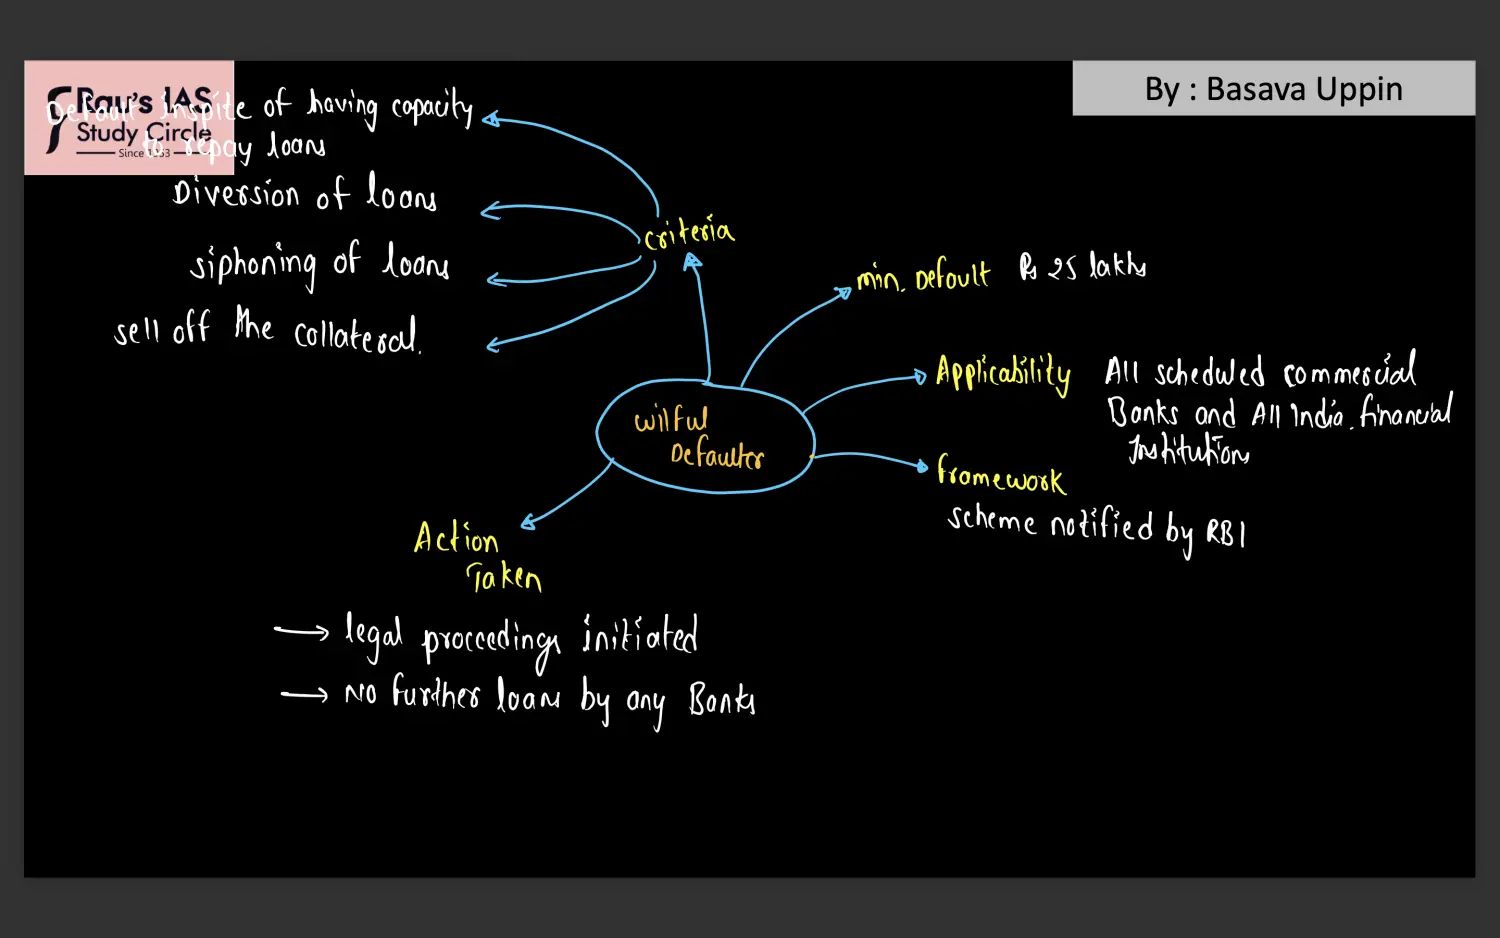 Rau's IAS
Study Circle
Since 1953
By : Basava Uppin
Default inspite of having capacity
to repay loans
Diversion of loans
siphoning of loans
sell off the collateral.
criteria
min. Default Rs 25 lakhs
Applicability All scheduled commercial
Banks and All India. financial
Institutions
wilful
Defaulter
framework
scheme notified by RBI
Action
Taken
→ legal proceedings initiated
→ No further loans by any Banks